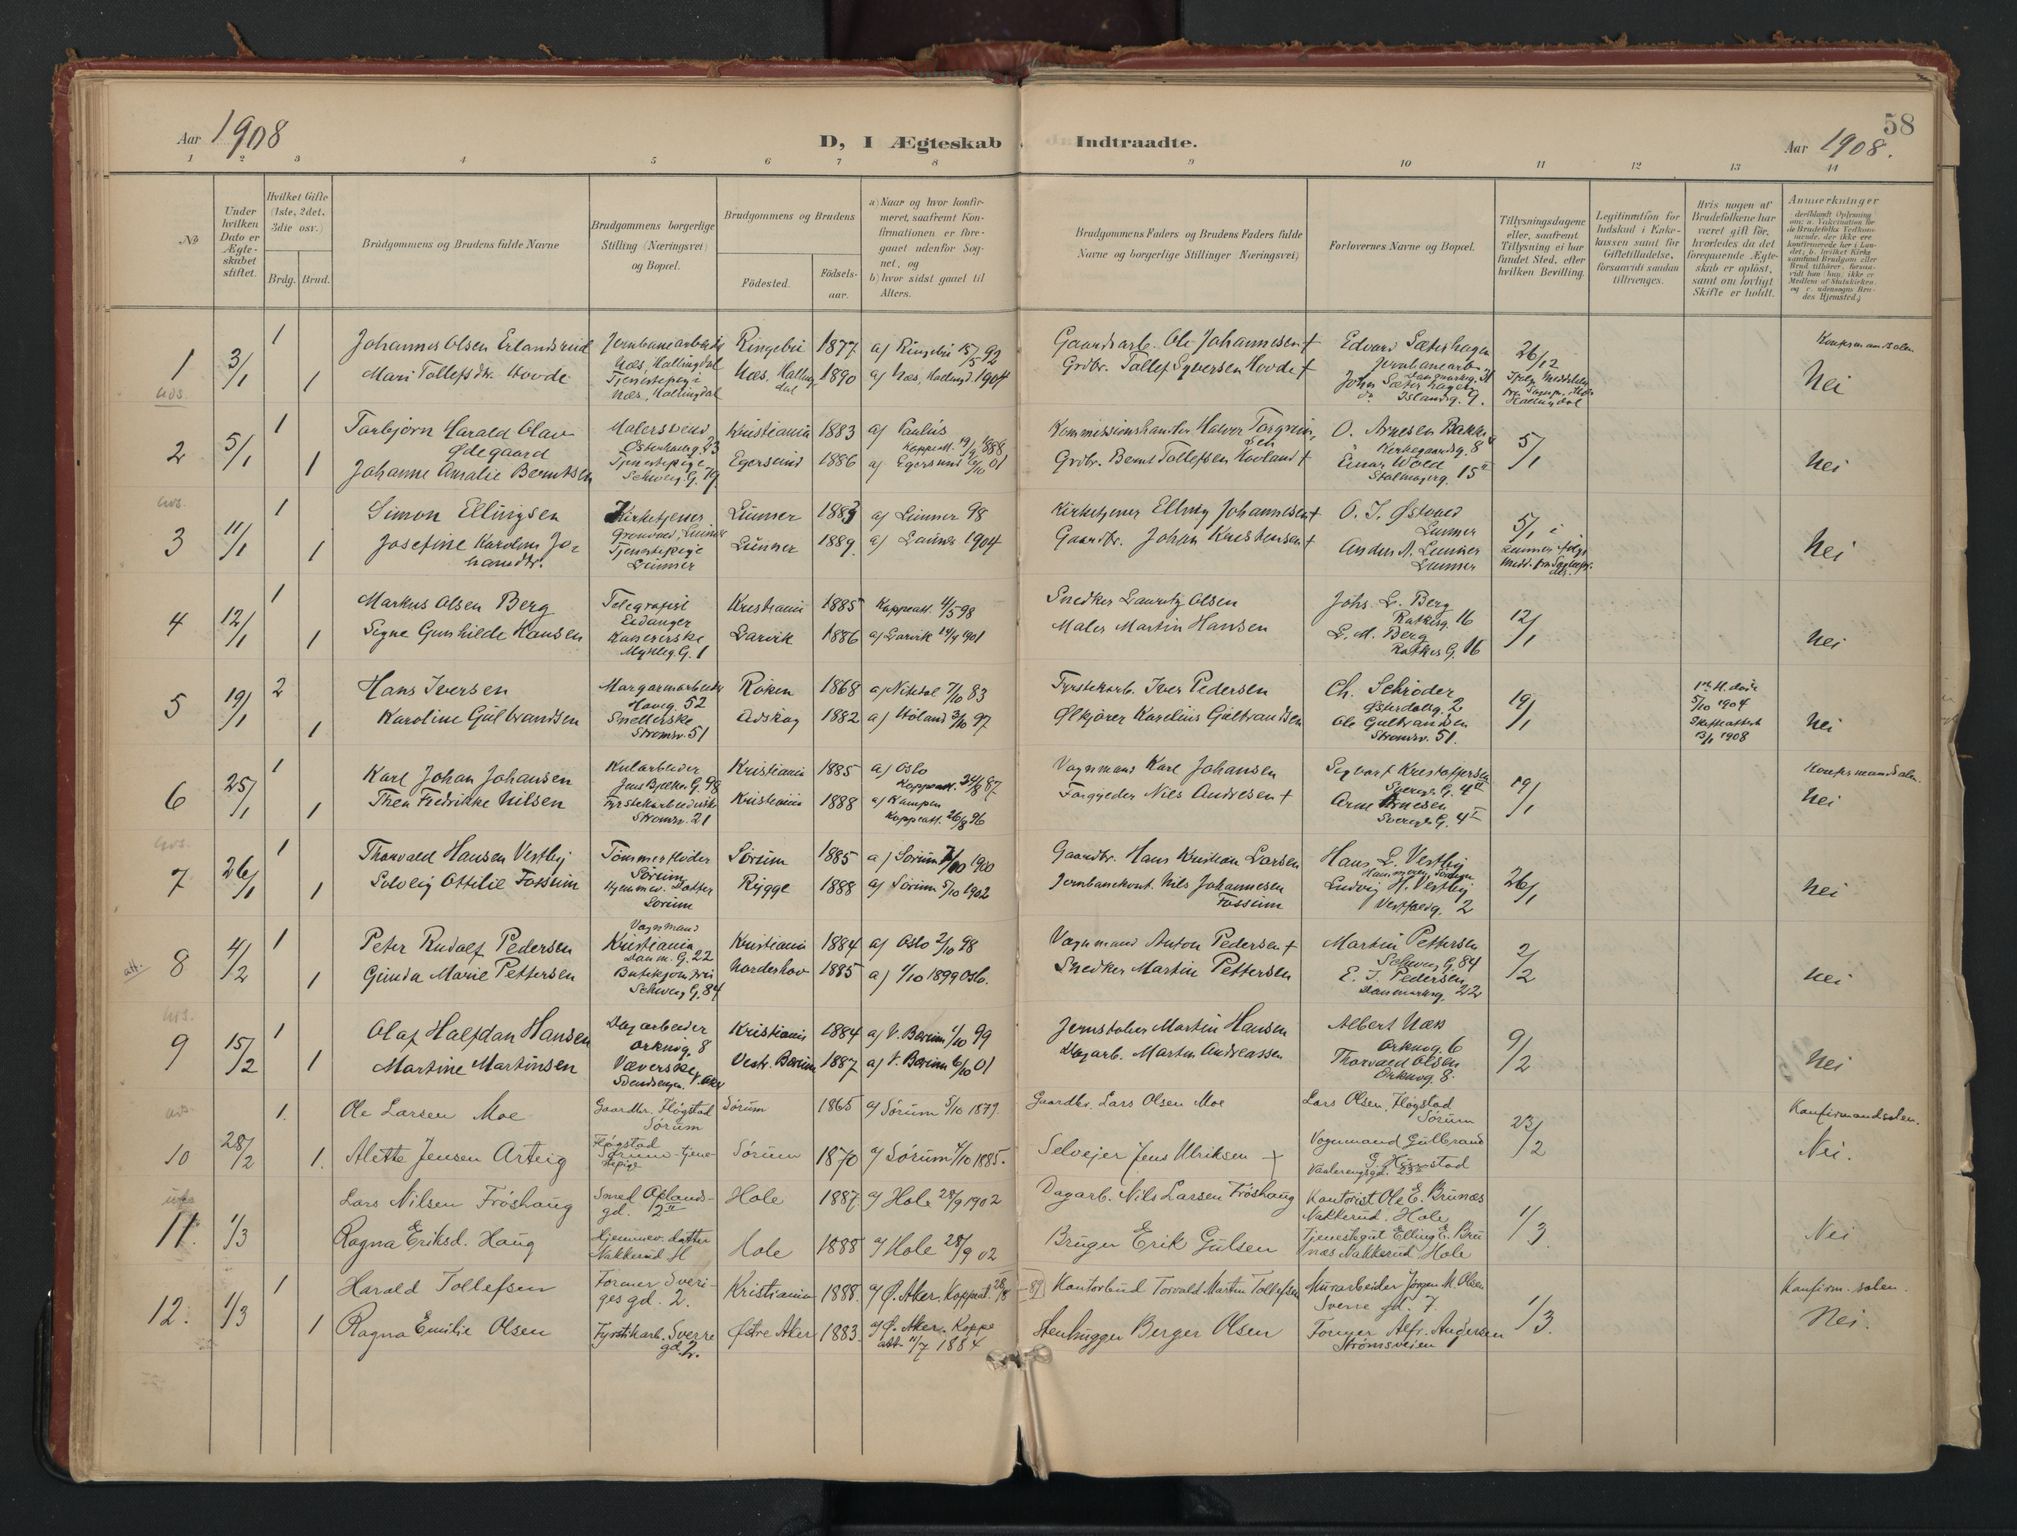 58
Aar 1908
D, I Ægteskab Indtraadte.
Aar 1908.
1 2 3 4 5 6 7 8 9 10 11 12 13 14
No
Under hvilken Dato er Ægteskabet stiftet.
Hvilket Gifte (1ste, 2det, 3die osv.)
Brdg. Brud.
Brudgommens og Brudens fulde Navne
Brudgommens borgerlige Stilling (Næringsvei) og Bopæl.
Brudgommens og Brudens
Fødested.
Fødselsaar.
a) Naar og hvor konfirmeret, saafremt Konfirmationen er foregaaet udenfor Sognet, og
b) hvor sidst gaael til Alters.
Brudgommens Faders og Brudens Faders fulde Navne og borgerlige Stillinger (Næringsvei)
Forlovernes Navne og Bopæl.
Tillysningsdagene eller, saafremt Tillysning ei har fundet Sted, efter hvilken Bevilling.
Legitimation for Indskud i Enkekassen samt for Giftetilladelse, forsaavidt saadan tiltrænges.
Hvis nogen af Brudefolkene har været gift før, hvorledes da det foregaaende Ægteskab er opløst, samt om lovligt Skifte er holdt.
Anmerkninger
1 3/1 1 Johannes Olsen Erlandsrud Jernbanearbeider Næs, Hallingdal Ringebu 1877 a) Ringebu 15/5 92 Gaardsarb. Ole Johannesen + Edvard Sætershagen Jernbanearb. 26/12 Konfirmandsalen
1 Mari Tollefsdr. Hovde Tjenestepige Næs, Hallingdal Næs, Hallingdal 1890 a) Næs, Hallingd 1904 Grdbr. Tollef Syversen Hovde + Islandsg. 7. Nei
2 5/1 1 Torbjørn Harald Olav Ødegaard Malersvend Østerdalsg. 23 Kristiania 1883 a) Paulus Kommissionshandler Halvor Torgrimsen O. Arnesen Bakke Kirkegaardsg. 8 5/1
1 Johanne Amalie Berntsen Tjenestepige Schweig. G. 79. Egersund 1886 a) Egersund Grdbr. Bernt Tollefsen Hovland + Einar Wold Stalmagerg. 15 II Nei
3 11/1 1 Simon Ellingsen Kirketjener Lunner 1883 a) Lunner 98 Kirketjener Elling Johannesen + O. I. Østvold Lunner 5/1 i
1 Josefine Karoline Johansdtr. Tjenestepige Lunner Lunner 1889. a) Lunner 1904 Gaardbr. Johan Kristensen + Anders A. Lunner Lunner Nei
4 12/1 1 Markus Olsen Berg Telegrafist Eidanger Kristiania 1885 Koppeatt. 4/5 98 Snedker Lauritz Olsen Johs. L. Berg Ratkesg. 16 12/1
1 Signe Gunhilde Hansen Kassererske Larvik 1886 a) Larvik 1901 Maler Martin Hansen L. M. Berg Ratkes G. 16 Nei
5 19/1 2 Hans Iversen Margarinarbeider Haveg. 52 Røken 1868 a) Nitedal 7/10 83 Fyrstikarb. Iver Pedersen Ch. Schrøder Østerdalsg. 2 19/1 5/10 1904
1 Karoline Gulbrandsen Snellerske Strømsv. 51 Aurskog 1882 a) Høland 3/10 97 Ølkjører Karelius Gulbrandsen Ole Gulbrandsen Strømsv. 51. Skifteattest 13/1 1908 Nei
6 25/1 1 Karl Johan Johansen Kularbeider Jens Bjelkes G. 98 Kristiania 1885 a) Oslo Koppeatt. 24/8 87 Vognmand Karl Johansen Sigvart Kristoffersen Sverges G. 4 II 19/1 Konfirmandsalen
1 Thea Fredrikke Nilsen Fyrstikarbeiderske Strømsv. 21 Kristiania 1888 a) Kampen Koppeatt. 26/8 96 Forgylder Nils Andresen + Arne Arnesen Sverges G. 4 I Nei
7 26/1 1 Thorvald Hansen Vestby Tømmerfløder Sørum Sørum 1885 a) Sørum 1/10 1900 Gaardbr. Hans Kristian Larsen Hans L. Vestby 26/1
1 Solveig Ottilie Fossum Hjemmev. Datter Sørum Rygge 1888 a) Sørum 5/10 1902 Jernbanekont. Nils Johannesen Fossum Ludvig H. Vestby Vestfoldg. 2 Nei
8 4/2 1 Peter Rudolf Pedersen Vognmand Kristiania Danm. G. 22 Kristiania 1884 a) Oslo 2/10 98 Vognmand Anton Pedersen + Martin Pettersen Schweig. G. 84 2/2
1 Gunda Marie Pettersen Schweig. G. 84 Nordeshov 1885 a) 1/10 1899 Oslo. Snedker Martin Pettersen E. I. Pedersen Danmarksg. 22 Nei
9 15/2 1 Olaf Halfdan Hansen Dagarbeider Orknøg. 8 Kristiania 1884 a) V. Bærum 1/10 99 Jernstøber Martin Hansen Albert Næs Orknøg. 6 9/2
1 Martine Martinsen Væverske Vestr. Bærum 1887 a) V. Bærum 6/10 01 Dagarb. Martin Andreassen Thorvald Olsen Orknøg. 8. Nei
10 28/2 1. Ole Larsen Moe Gaardbr. Fløgstad Sørum Sørum 1865 a/ Sørum 5/10 1879. Gaardbr. Lars Olsen Moe Lars Olsen, Fløgstad Sørum 23/2 Konfirmandsalen.
1. Alette Jensen Arteig Fløgstad Sørum tjenestepige Sørum 1870 a/ Sørum 4/10 1885. Selveier Jens Ulriksen + Vognmand Gulbrand Vaalerengsgd. 23 II Nei.
11. 1/3 Lars Nilsen Frøshaug Smed Oplandsgd. 2 II Hole 1887 a/ Hole 28/9 1902 Dagarb. Nils Larsen Frøshaug Kontorist Ole E. Brunæs Nakkerud. Hole 1/3.
Ragna Eriksd. Haug Hjemmev. datter Nakkerud H Hole 1888 a/ Hole 28/9 02 Bruger Erik Gulsen Tjenestegut Elling E. Brunæs Nakkerud, Hole Nei
12. 1/3 1 Harald Tollefsen Former Sverigesgd. 2. Kristiania 1888. a/ Ø. Aker. Koppeat. 28/8 89 Kontorbud Torvald Martin Tollefsen Murarbeider Jørgen M. Olsen Sverre gd. 7. 1/3. Konfirm.salen.
1 Ragna Emilie Olsen Fyrstikarb. Sverre gd. 2. Østre Aker 1883. a/ Ø. Aker. Koppeatt. 11/7 1884 Stenhugger Berger Olsen Former Alfr. Andersen Strømsveien 1 Nei.